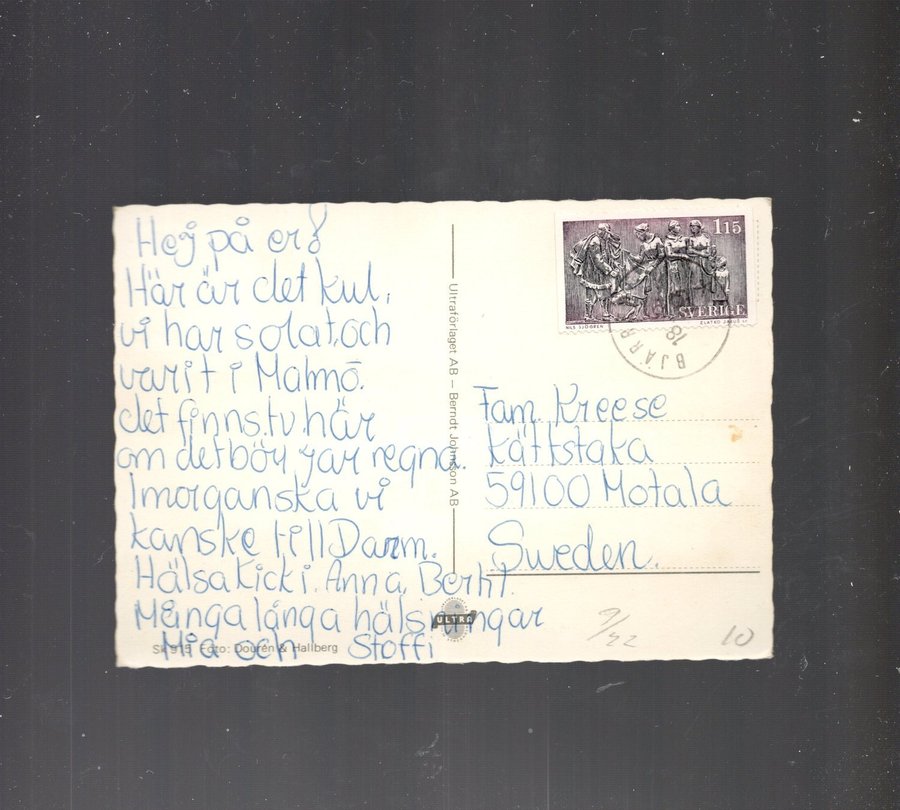 Hej på er!
Här är det kul,
vi har solat och
varit i Malmö.
det finns.tv.här
om det börjar regna.
Imorgan ska vi
kanske till Danm.
Hälsa Kicki. Anna, Bertil.
Många långa hälsningar
Mia och Stoffi
Sk 915 Foto: Dourén & Hallberg
Ultraförlaget AB – Berndt Johnsson AB
ULTRA
1 15
SVERIGE
NILS SJÖGREN
ZLATKO JAKUŠ SC
BJÄRR
78
Fam. Kreese
Kättstaka
59100 Motala
Sweden.
10